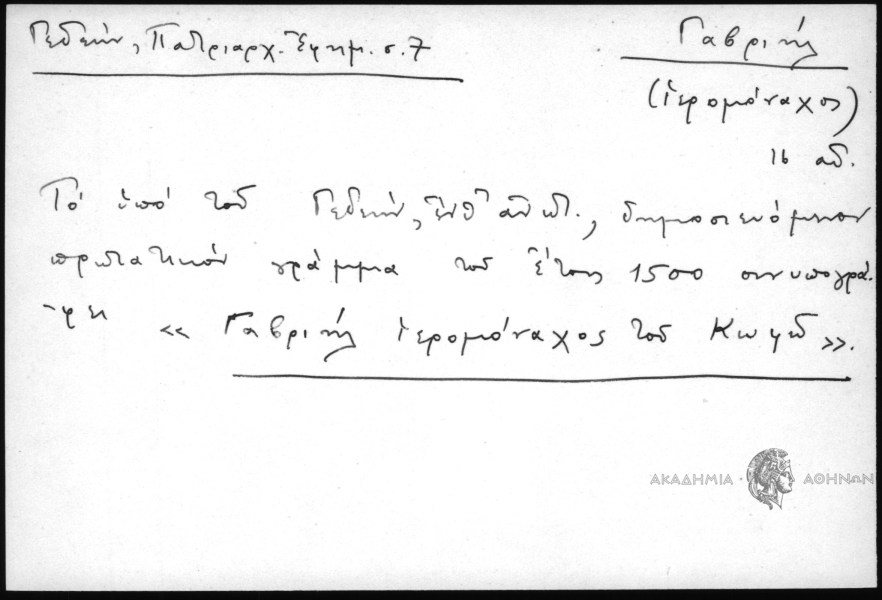 Γεδεών, Πατριαρχ. Ἐφημ. σ. 7
Γαβριήλ
(ἱερομόναχος)
16 αἰ.
Τό ὑπό τοῦ Γεδεών, ἔνθ' ἀνωτ., δημοσιευόμενον
πρωτατικόν γράμμα τοῦ ἔτους 1500 συνυπογρά-
-φει « Γαβριήλ ἱερομόναχος τοῦ Κωφοῦ ».
ΑΚΑΔΗΜΙΑ ΑΘΗΝΩΝ